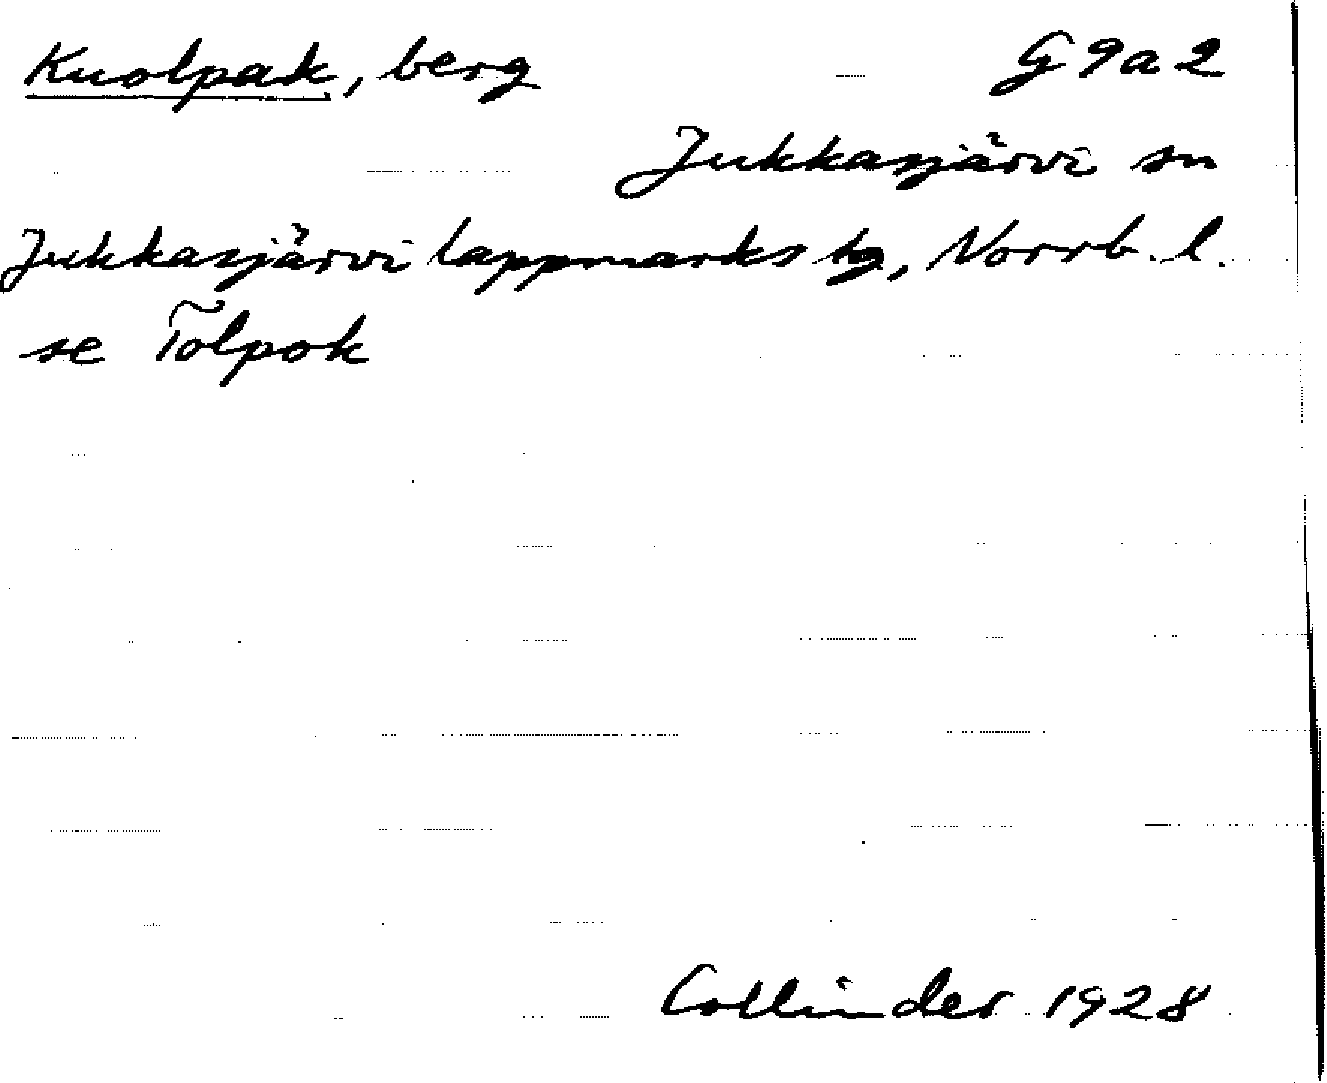 Kuolpak, berg G 9 a 2
Jukkasjärvi sn
Jukkasjärvi lappmarks tg, Norrb. l.
se Tolpok
Collinder 1928